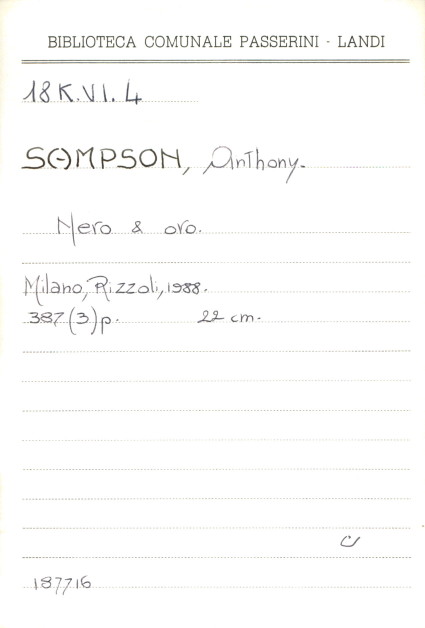 BIBLIOTECA COMUNALE PASSERINI - LANDI
18 K.VI.4
SAMPSON, Anthony.
Nero & oro.
Milano, Rizzoli, 1988.
387 (3) p. 22 cm.
187716